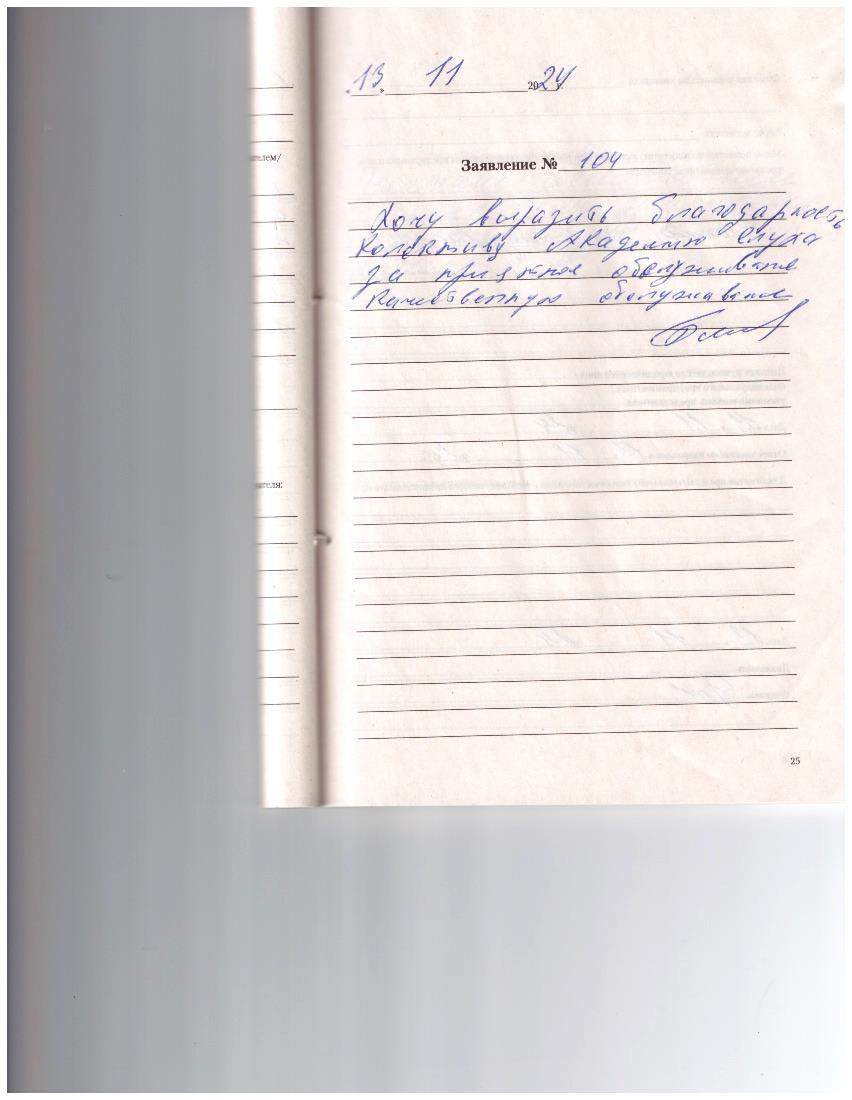 "13" 11 2024
Заявление № 104
Хочу выразить благодарность
Колективу Академию Слуха
за приятное обслуживание
Качественную обслуживание
ателем/
ателя:
25